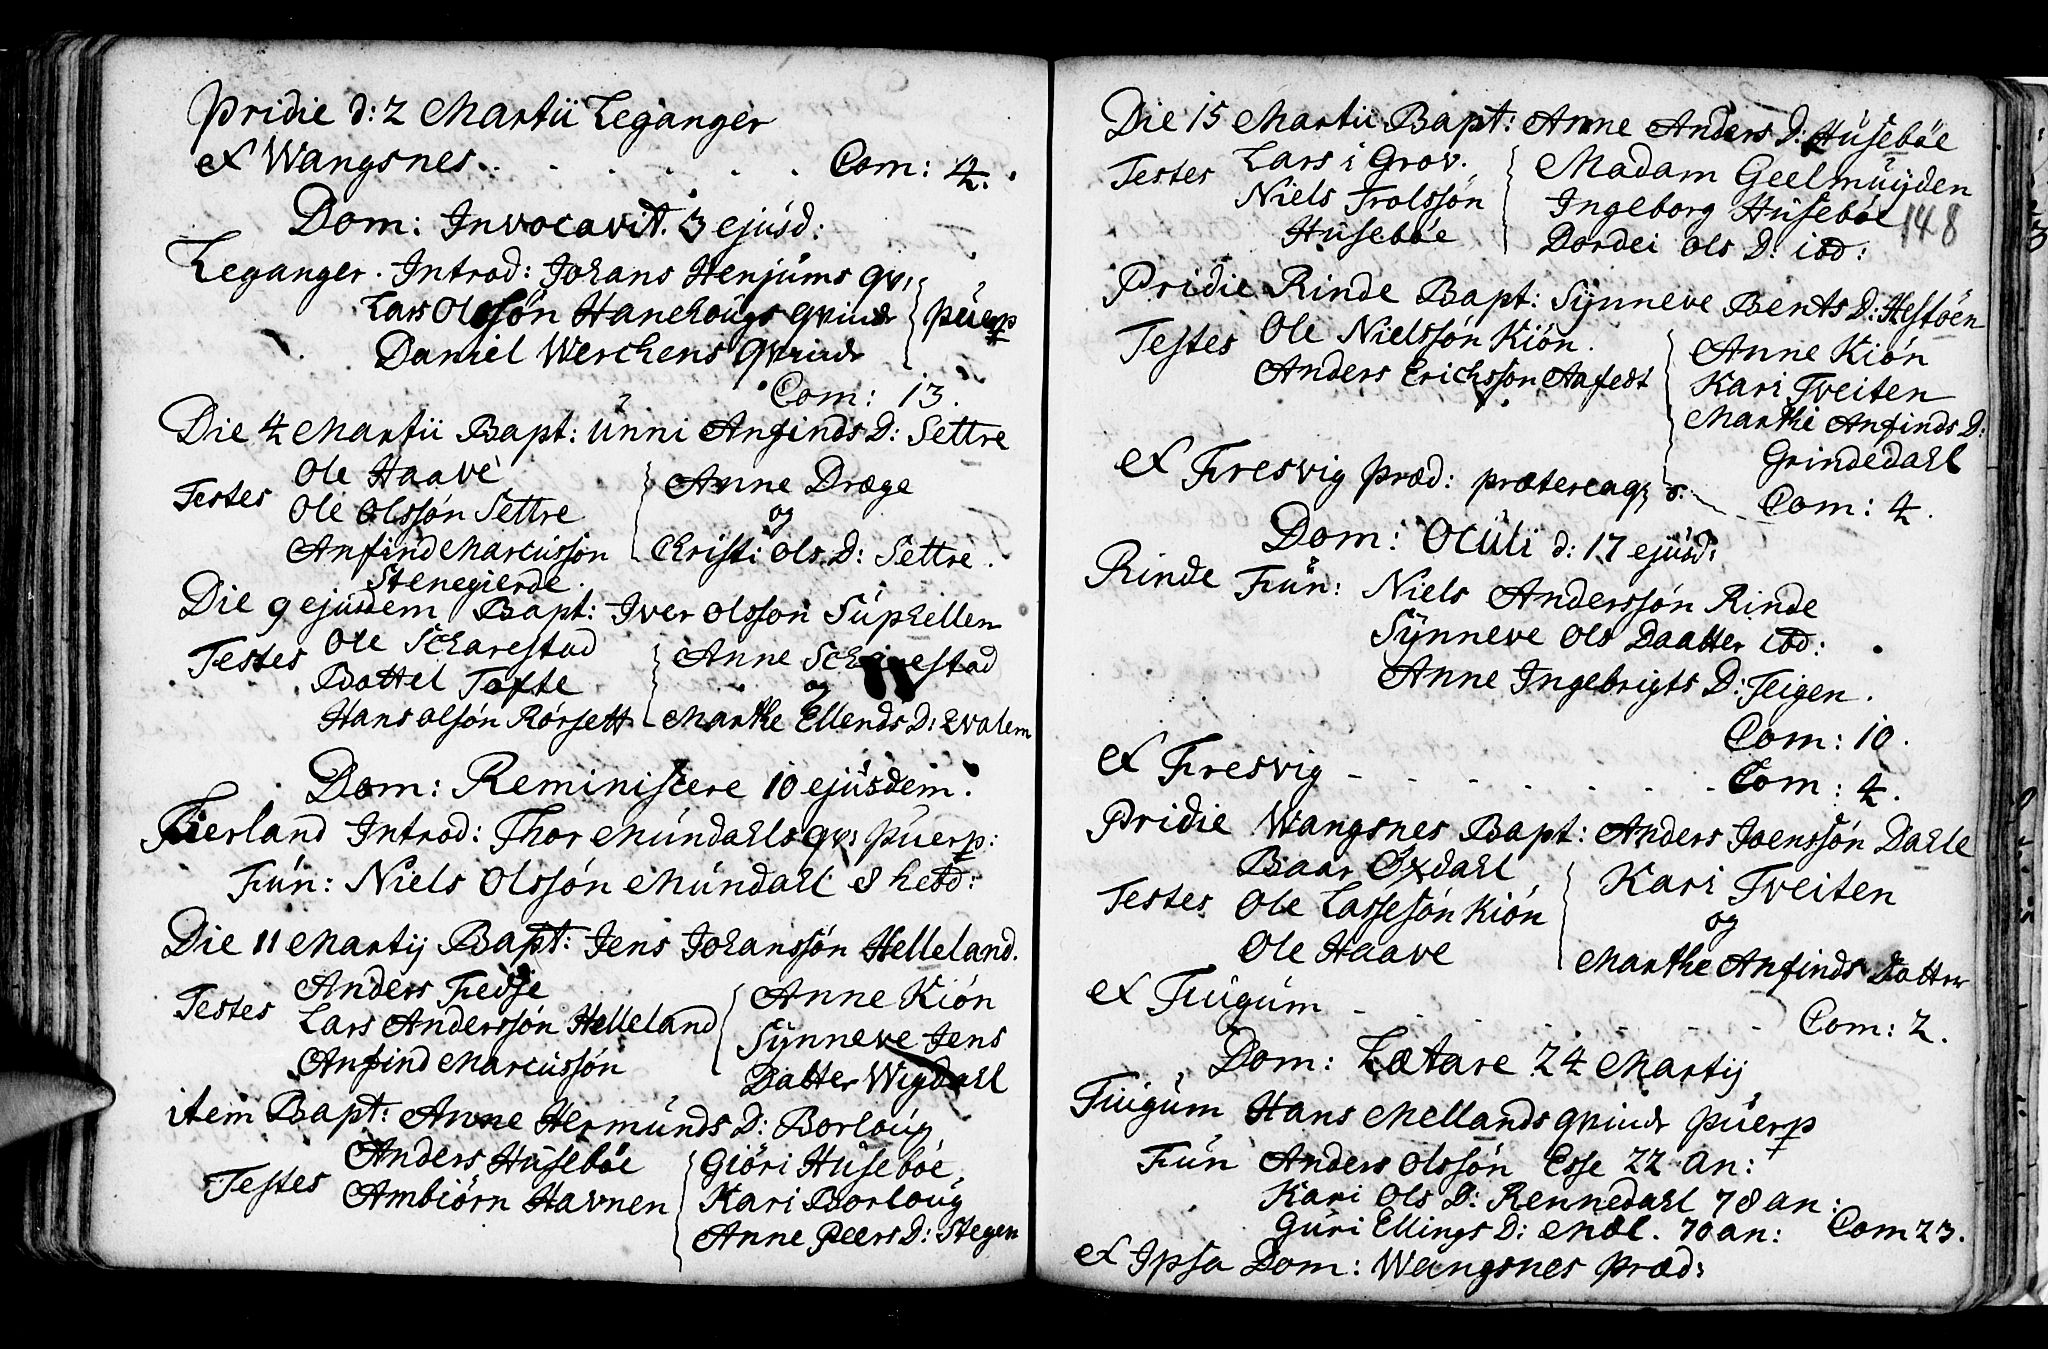 Pridie d: 2 Martii Leganger
et Wangsnes . . . . . . Com: 4.
Dom: Invocavit. 3 ejusd:
Leganger. Introd: Johans Henjums qv:
Lars Olssön Hanehougs qvinde } puerp
Daniel Werchens qvinde
Com: 13.
Die 4 Martii Bapt: Unni Anfinds D: Settre
Ole Haave
Testes Ole Olssön Settre
Anfind Marcussön
Stenegierde.
Anne Dræge
og
Christi Ols D: Settre.
Die 9 ejusdem Bapt: Iver Olsson Suphellen
Testes Ole Scharestad
Bottel Tofte
Hans Olsön Rörsett
Anne Scharestad
og
Marthe Ellends D: Qvalem
Dom: Reminiscere 10 ejusdem.
Fierland Introd: Thor Mundahls qv: puerp:
Fun: Niels Olssön Mundahl 8 hebd:
Die 11 Martij Bapt: Jens Johanssön Helleland.
Anders Fedje
Testes Lars Anderssön Helleland
Anfind Marcussön
Anne Kiön
Synneve Jens
Datter Wigdahl
item Bapt: Anne Hermunds D: Borloug
Testes Anders Husebøe
Ambiörn Havnen
Giöri Husebøe
Kari Borloug
Anne Peers D: Stegen
Die 15 Martii Bapt: Anne Anders D: Husebøe
Testes Lars i Grov.
Niels Trolssön
Husebøe
Madam Geelmuyden
Ingeborg Husebøe
Dordei Ols D: ibd:
148
Pridie Rinde Bapt: Synneve Bents D: Hestöen
Testes Ole Nielssön Kiön.
Anders Erichsson Aafedt
Anne Kiön
Kari Tveiten
Marthe Anfinds D:
Grindedahl
et Fresvig præd: prætereaq; Com: 4.
Dom: Oculi d: 17 ejusd:
Rinde Fun: Niels Anderssön Rinde
Synneve Ols Daatter ibd:
Anne Ingebrigts D: Teigen.
Com: 10.
et Fresvig - - - - - - Com: 4.
Pridie Wangsnes Bapt: Anders Joenssön Dahle
Baar Oxdahl
Testes Ole Lassesön Kiön
Ole Haave
Kari Tveiten
og
Marthe Anfinds Datter
et Fuigum - - - - - - Com: 2.
Dom: Lætare 24 Martij
Fuigum Hans Mellands qvinde puerp
Fun Anders Olssön Esse 22 an:
Kari Ols D: Rennedahl 78 an:
Guri Ellings D: Mæl. 70 an: Com 23.
et Ipsa Dom: Wangsnes præd: